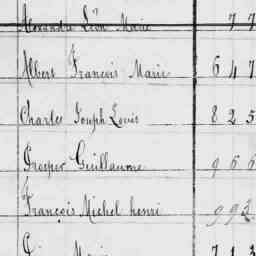 Alexandre Léon Marie 77
Albert François Marie 647
Charles Joseph Louis 825
Prosper Guillaume 966
François Michel henri 993
Marie 713